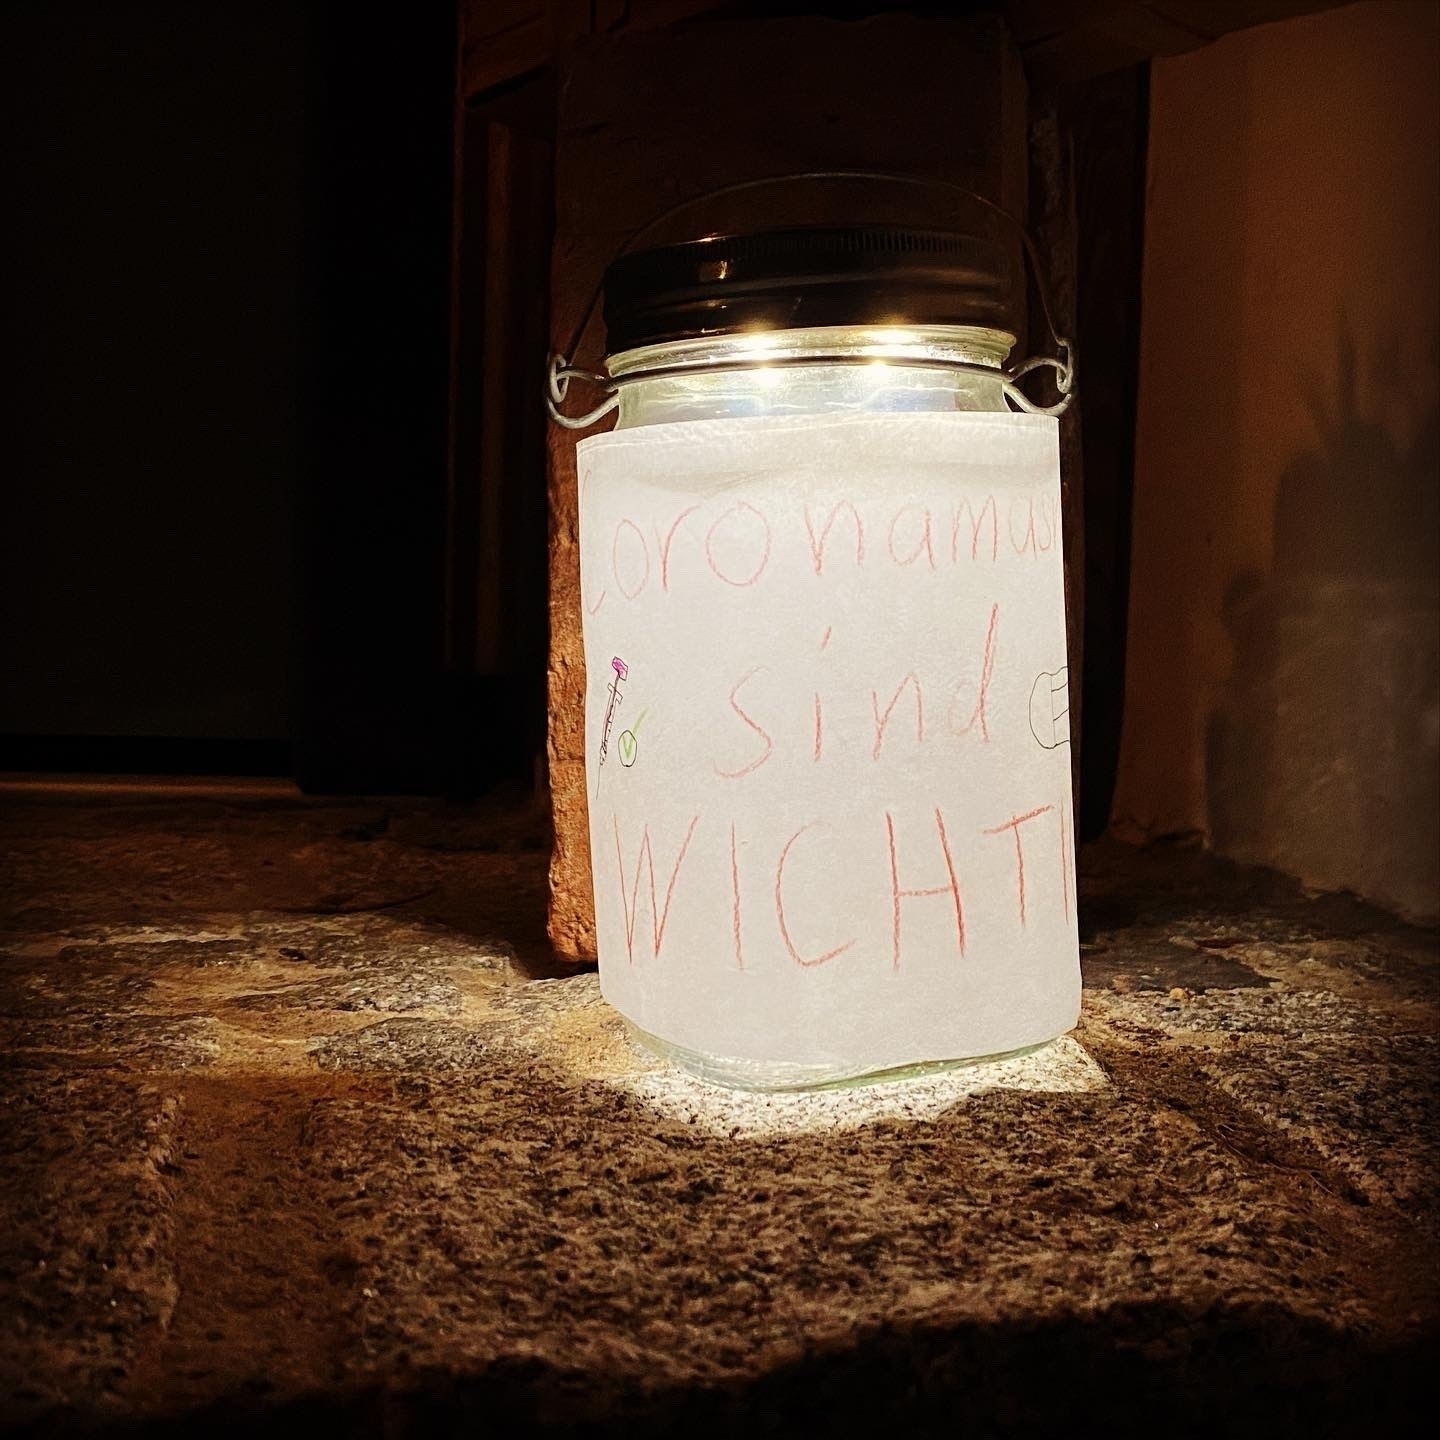 Coronamas
sind
WICHTI